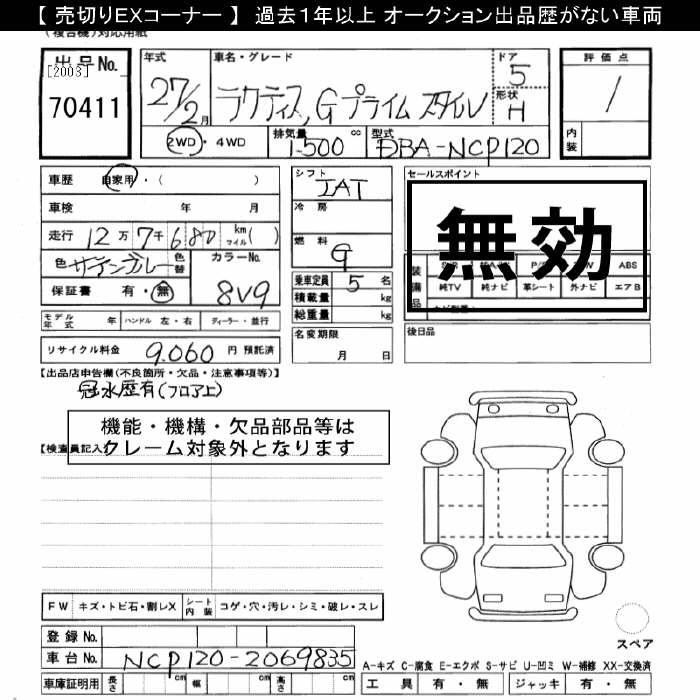 【 売切りEXコーナー 】 過去1年以上 オークション出品歴がない車両
(複合機)対応用紙
出品No.
[2003]
70411
年式
27/2月
車名・グレード
ラクティス,Gプライムスタイル
ドア
5
形状
H
評価点
1
内装
2WD・4WD
排気量
1500 cc
型式
DBA-NCP120
車歴 自家用・( )
車検 年 月
走行 12万 7千 680 km マイル ( )
色
色替
カラーNo.
8V9
保証書 有・無
シフト
IAT
冷房
燃料
g
乗車定員 5 名
積載量 kg
総重量 kg
セールスポイント
無効
装備品
ABS
純TV 純ナビ 革シート 外ナビ エアB
モデル年式 年 ハンドル 左・右 ディーラー・並行
名変期限
月 日
後日品
リサイクル料金 9,060 円 預託済
【出品店申告欄(不良箇所・欠品・注意事項等)】
冠水歴有(フロア上)
機能・機構・欠品部品等は
クレーム対象外となります
【検査員記入
FW キズ・トビ石・割レX シート内装 コゲ・穴・汚レ・シミ・破レ・スレ
登録No.
車台No. NCP120-2069835
スペア
A-キズ C-腐食 E-エクボ S-サビ U-凹ミ W-補修 XX-交換済
車庫証明用 長さ cm 幅 cm 高さ cm
工具 有・無 ジャッキ 有・無